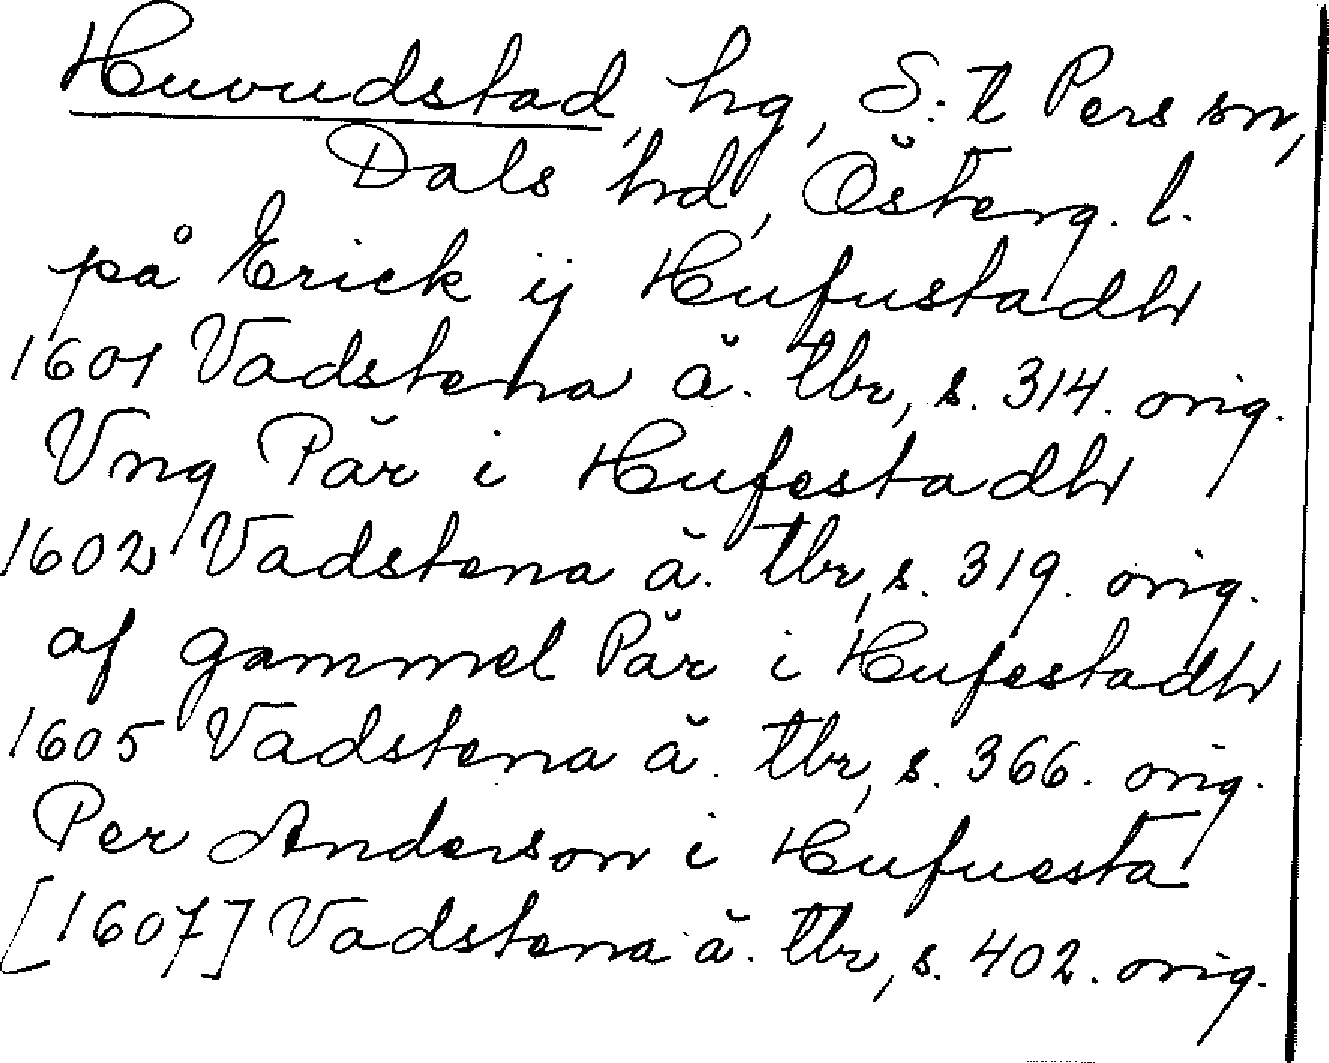 Huvudstad, hg, S:t Pers sn,
Dals hd, Österg. l.
på Erick ij Hufustadh
1601 Vadstena ä. tbr, s. 314. orig.
Vng Pär i Hufestadh
1602 Vadstena ä. tbr, s. 319. orig.
af gammel Pär i Hufestadh
1605 Vadstena ä. tbr, s. 366. orig.
Per Anderson i Hufuesta
[1607] Vadstena ä. tbr, s. 402. orig.